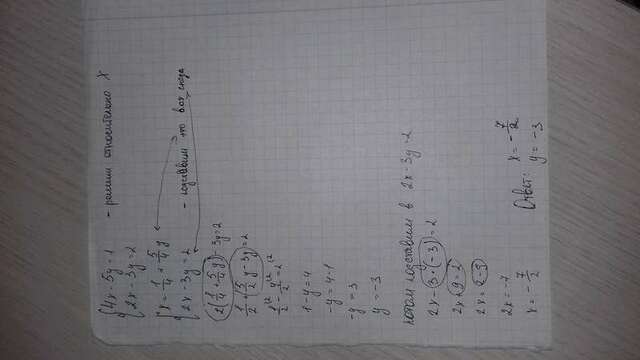 {4x - 5y = 1 - решим относительно X
{2x - 3y = 2
{x = 1/4 + 5/4 y
{2x - 3y = 2 - подставим это вот сюда
2(1/4 + 5/4 y) - 3y = 2
1/2 + (5/2 y - 3y) = 2
1/2 |2 - y/2 |2 = 2 |2
1 - y = 4
-y = 4 - 1
-y = 3
y = -3
потом подставим в 2x - 3y = 2
2x - 3·(-3) = 2
2x + 9 = 2
2x = 2 - 9
2x = -7
x = -7/2
Ответ: x = -7/2
y = -3